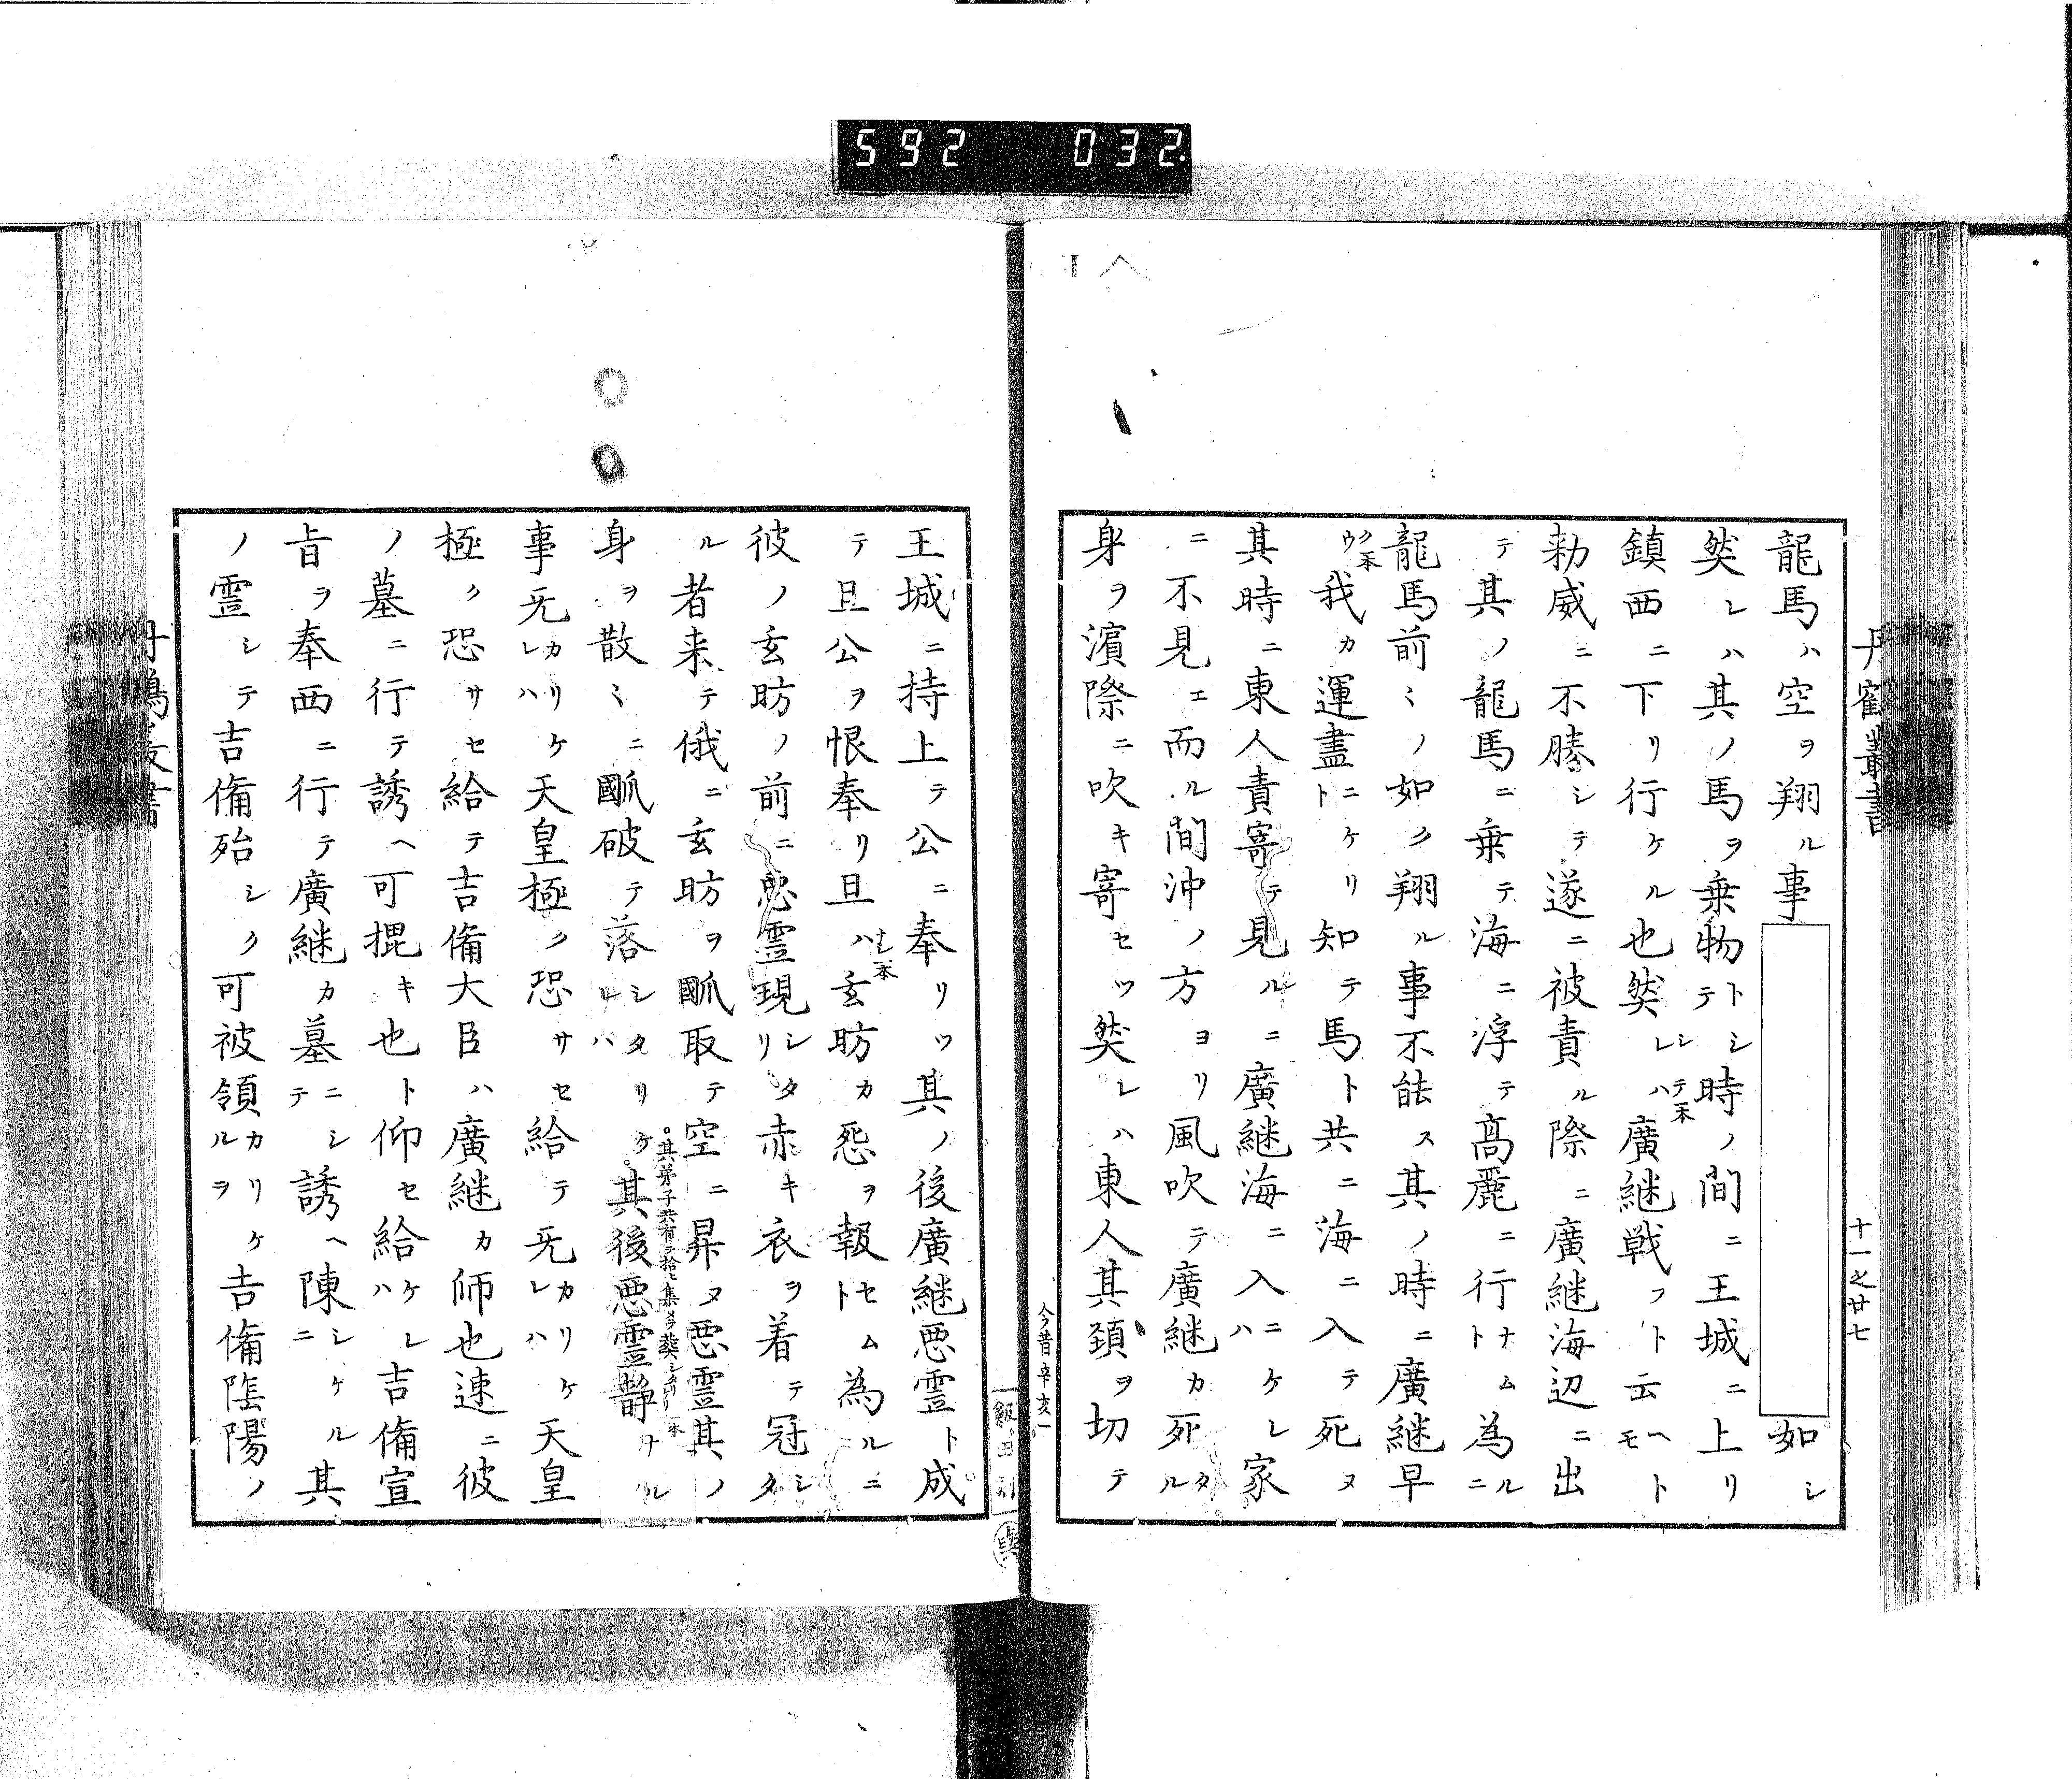 592 032
丹鶴叢書
十一之廿七
龍馬ハ空ヲ翔ル事 如シ
然レハ其ノ馬ヲ乗物トシテ時ノ間ニ王城ニ上リ
鎮西ニ下リ行ケル也然レハ廣継戦フト云ヘトモ
シテ一本
勅威ニ不勝シテ遂ニ被責ル際ニ廣継海辺ニ出
テ其ノ龍馬ニ乗テ海ニ浮テ高麗ニ行ナムト為ルニ
龍馬前〻ノ如ク翔ル事不能ス其ノ時ニ廣継早
ウ我カ運盡ニケリト知テ馬ト共ニ海ニ入テ死ヌ
ク一本
其時ニ東人責寄テ見ルニ廣継海ニ入ニケレハ家
ニ不見エ而ル間沖ノ方ヨリ風吹テ廣継カ死タル
身ヲ濱際ニ吹キ寄セツ然レハ東人其頚ヲ切テ
今昔辛亥一
王城ニ持上ラ公ニ奉リツ其ノ後廣継悪霊ト成
テ且公ヲ恨奉リ且ハ玄昉カ怨ヲ報セムト為ルニ
彼ノ玄昉ノ前ニ悪霊現シタリ赤キ衣ヲ着テ冠シタ
ル者来テ俄ニ玄昉ヲ𤔩取テ空ニ昇ヌ悪霊其ノ
身ヲ散〻ニ𤔩破テ落シタリケレハ其後悪霊静ナル
其弟子共有テ拾ヒ集メテ葬シタリ一本
事无カリケレハ天皇極ク恐サセ給テ无カリケレハ天皇
極ク恐サセ給テ吉備大臣ハ廣継カ師也速ニ彼
ノ墓ニ行テ誘ヘ可掍キ也ト仰セ給ケレハ吉備宣
旨ヲ奉西ニ行テ廣継カ墓ニシテ誘ヘ陳シケルニ其
ノ霊シテ吉備殆シク可被領カリケルヲ吉備陰陽ノ
丹鶴叢書